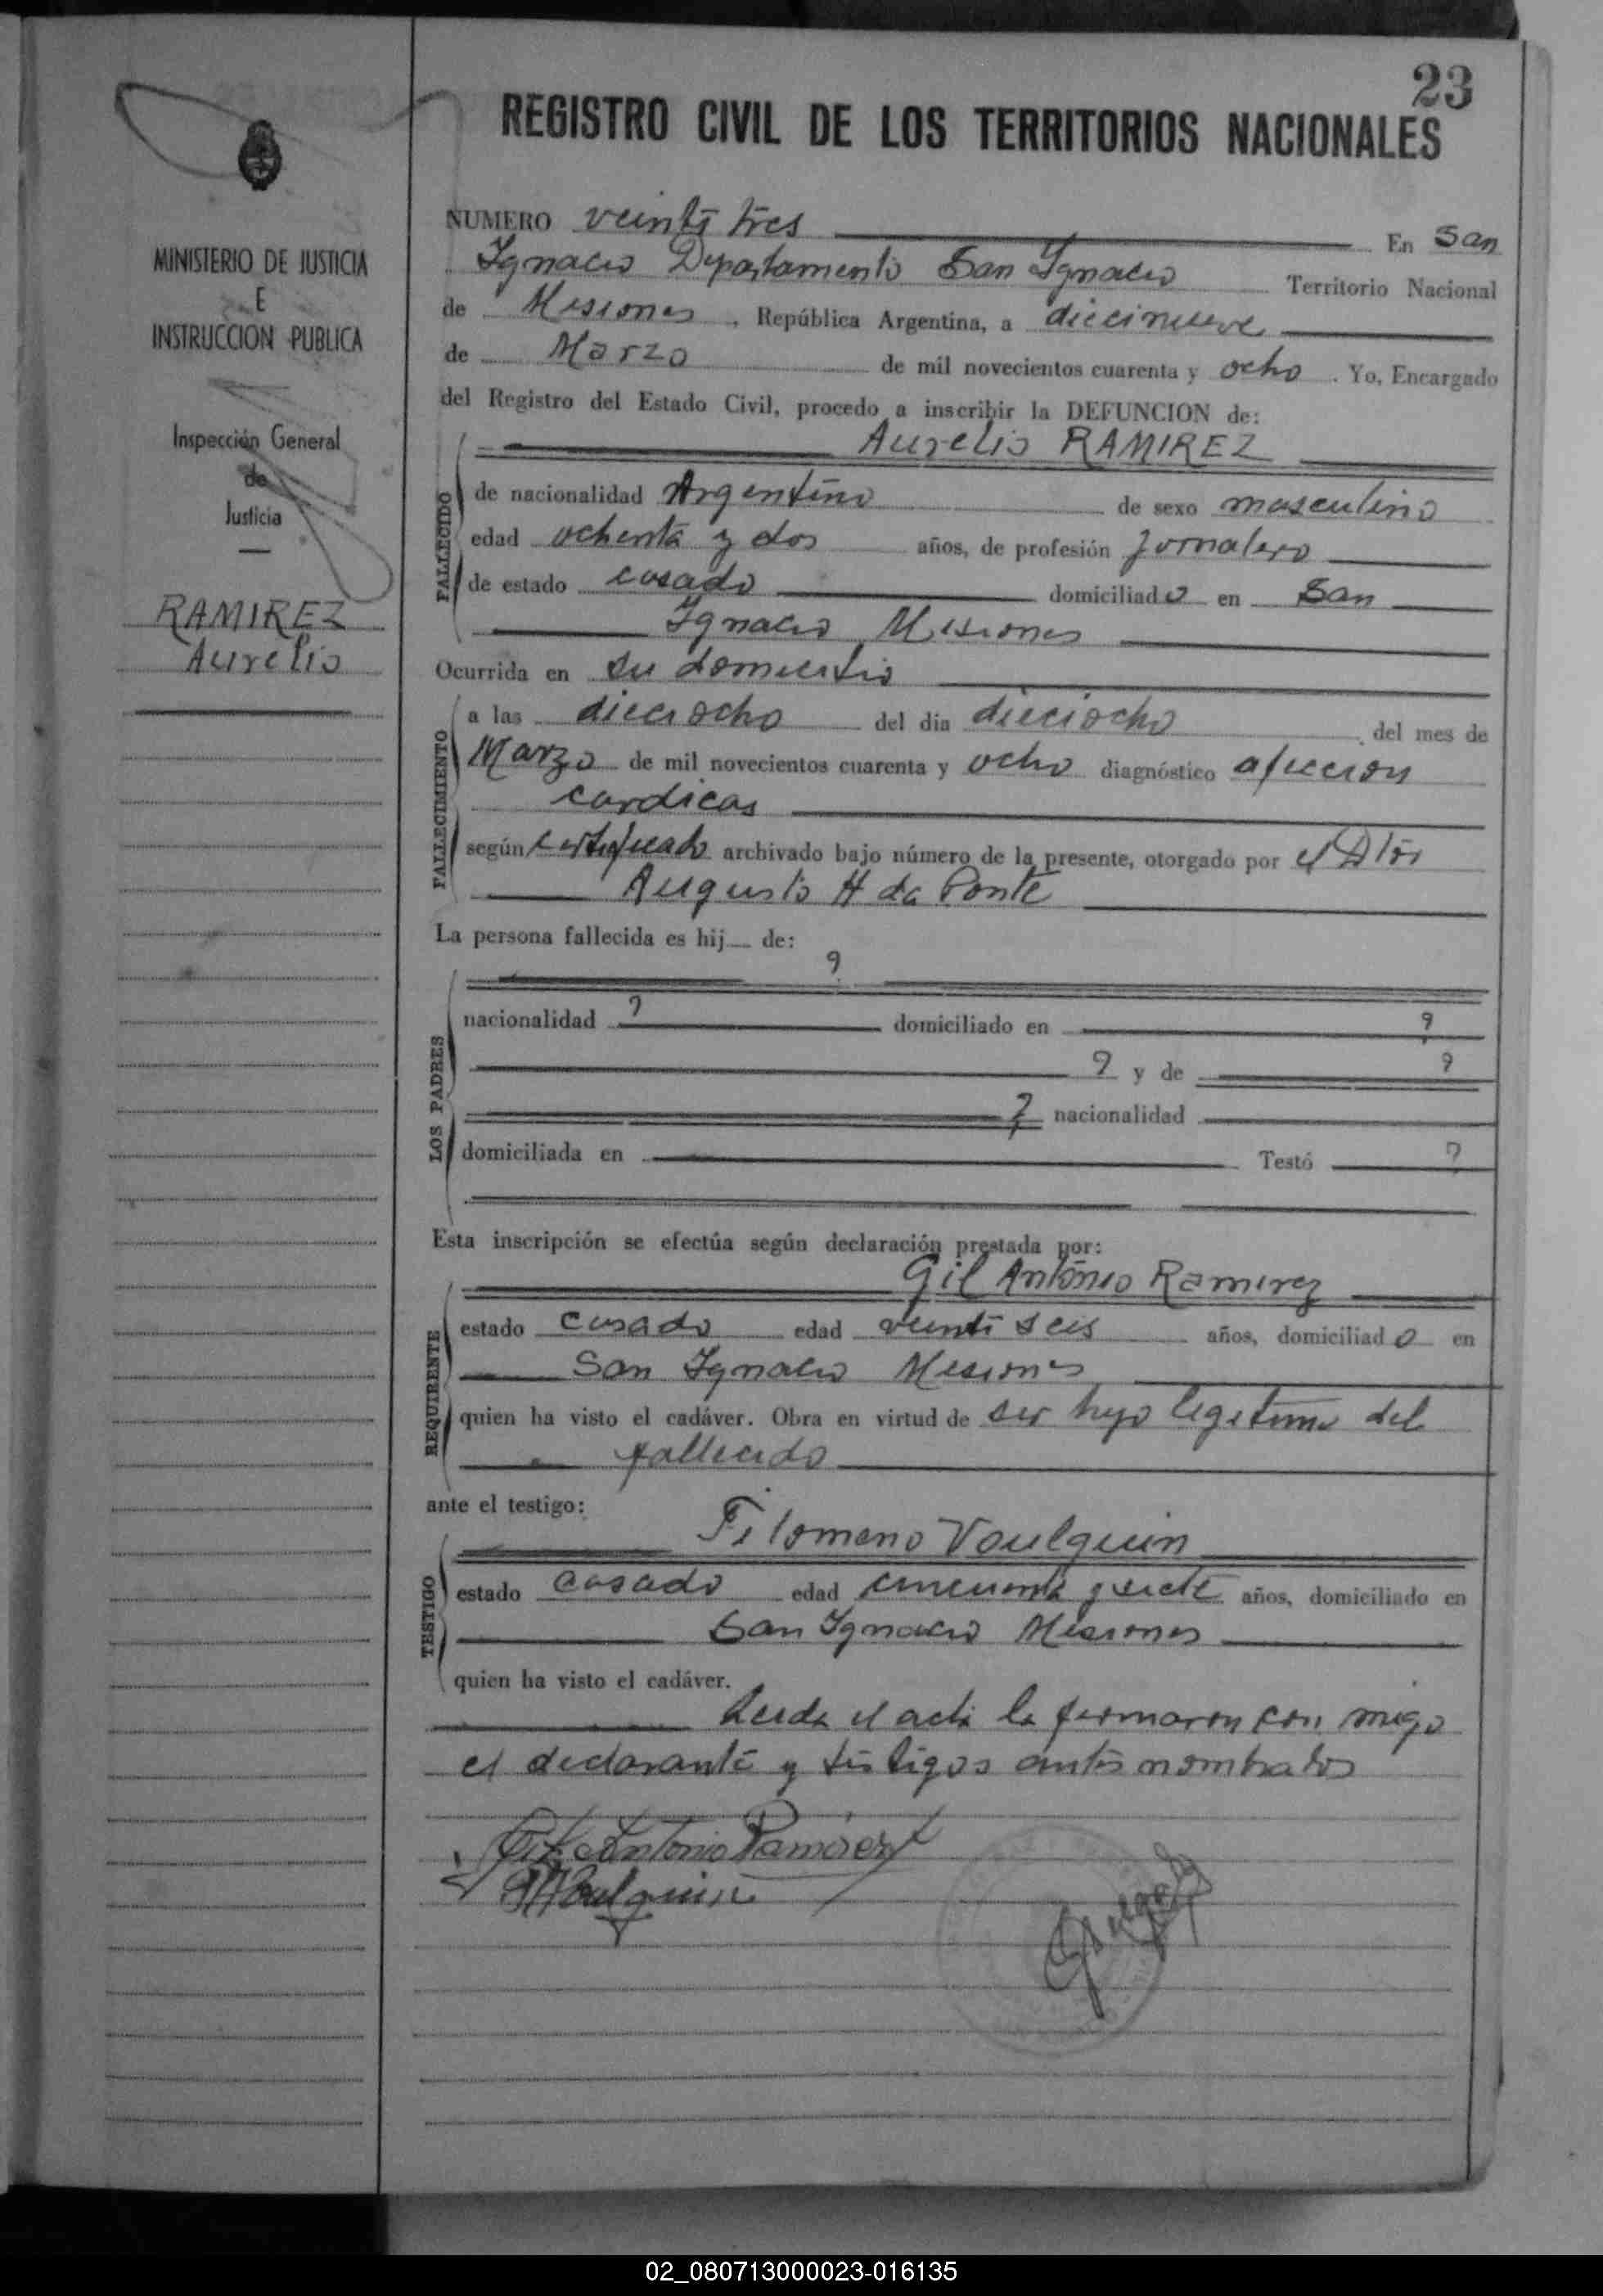 23
REGISTRO CIVIL DE LOS TERRITORIOS NACIONALES
MINISTERIO DE JUSTICIA
E
INSTRUCCION PUBLICA
Inspección General
de
Justicia
RAMIREZ
Aurelio
NUMERO veinti tres En San
Ignacio Departamento San Ignacio Territorio Nacional
de Misiones, República Argentina, a diecinueve
de Marzo de mil novecientos cuarenta y ocho. Yo, Encargado
del Registro del Estado Civil, procedo a inscribir la DEFUNCION de:
Aurelio RAMIREZ
FALLECIDO
de nacionalidad Argentino de sexo masculino
edad ochenta y dos años, de profesión Jornalero
de estado casado domiciliado en San
Ignacio Misiones
Ocurrida en su domicilio
FALLECIMIENTO
a las dieciocho del dia dieciocho del mes de
Marzo de mil novecientos cuarenta y ocho diagnóstico afeccion
cardicas
según certificado archivado bajo número de la presente, otorgado por el Dtor
Augusto H da Ponte
La persona fallecida es hij de:
?
LOS PADRES
nacionalidad ? domiciliado en ?
? y de ?
? nacionalidad
domiciliada en Testó ?
Esta inscripción se efectúa según declaración prestada por:
Gil Antonio Ramirez
REQUIRENTE
estado casado edad veinti seis años, domiciliado en
San Ignacio Misiones
quien ha visto el cadáver. Obra en virtud de ser hijo legitimo del
fallecido
ante el testigo:
Filomeno Voulquin
TESTIGO
estado casado edad cincuenta y siete años, domiciliado en
San Ignacio Misiones
quien ha visto el cadáver.
Leida el acta la firmaron con migo
el declarante y testigos antes nombrados
Gil Antonio Ramirez
Voulquin
02_080713000023-016135